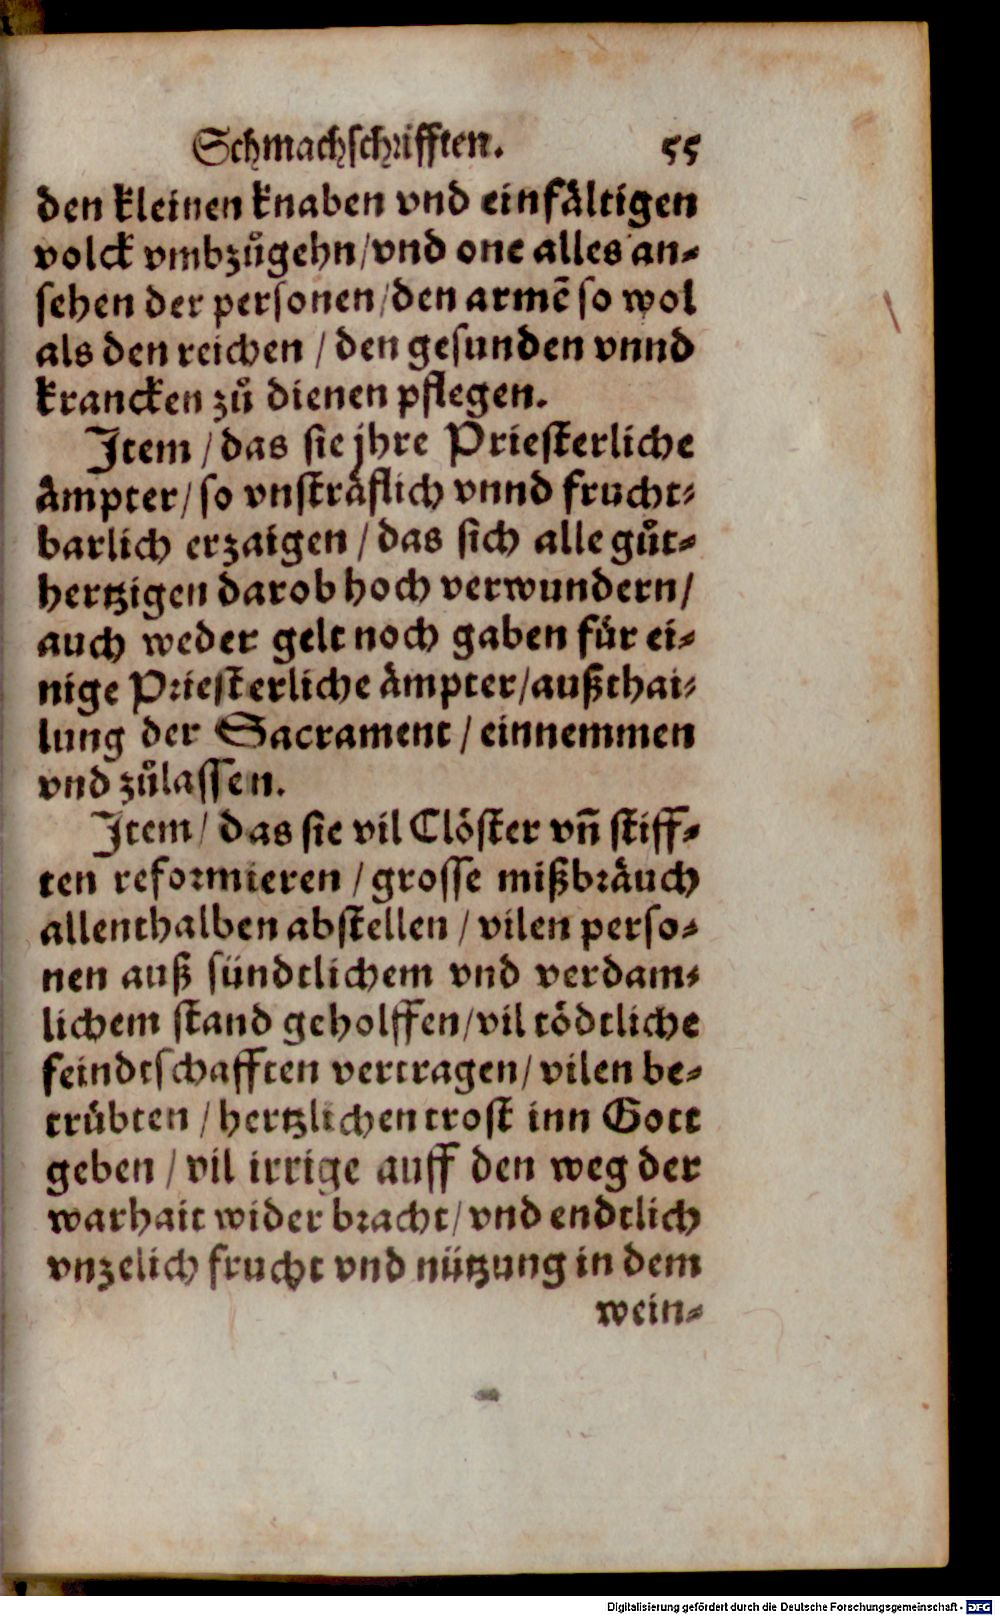 Schmachschrifften. 55
den kleinen knaben vnd einfåltigen
volck vmbzůgehn/vnd one alles an⸗
sehen der personen/den armẽ so wol
als den reichen / den gesunden vnnd
krancken zů dienen pflegen.
Item / das sie jhre Priesterliche
åmpter/ so vnstråflich vnnd frucht⸗
barlich erzaigen / das sich alle gůt⸗
hertzigen darob hoch verwundern/
auch weder gelt noch gaben für ei⸗
nige Priesterliche åmpter/außthai⸗
lung der Sacrament / einnemmen
vnd zůlassen.
Item/ das sie vil Clöster vñ stiff⸗
ten reformieren / grosse mißbråuch
allenthalben abstellen / vilen perso⸗
nen auß sündtlichem vnd verdam⸗
lichem stand geholffen/vil tödtliche
feindtschafften vertragen/ vilen be⸗
trübten / hertzlichen trost inn Gott
geben / vil irrige auff den weg der
warhait wider bracht/ vnd endtlich
vnzelich frucht vnd nützung in dem
wein⸗
Digitalisierung gefördert durch die Deutsche Forschungsgemeinschaft - DFG